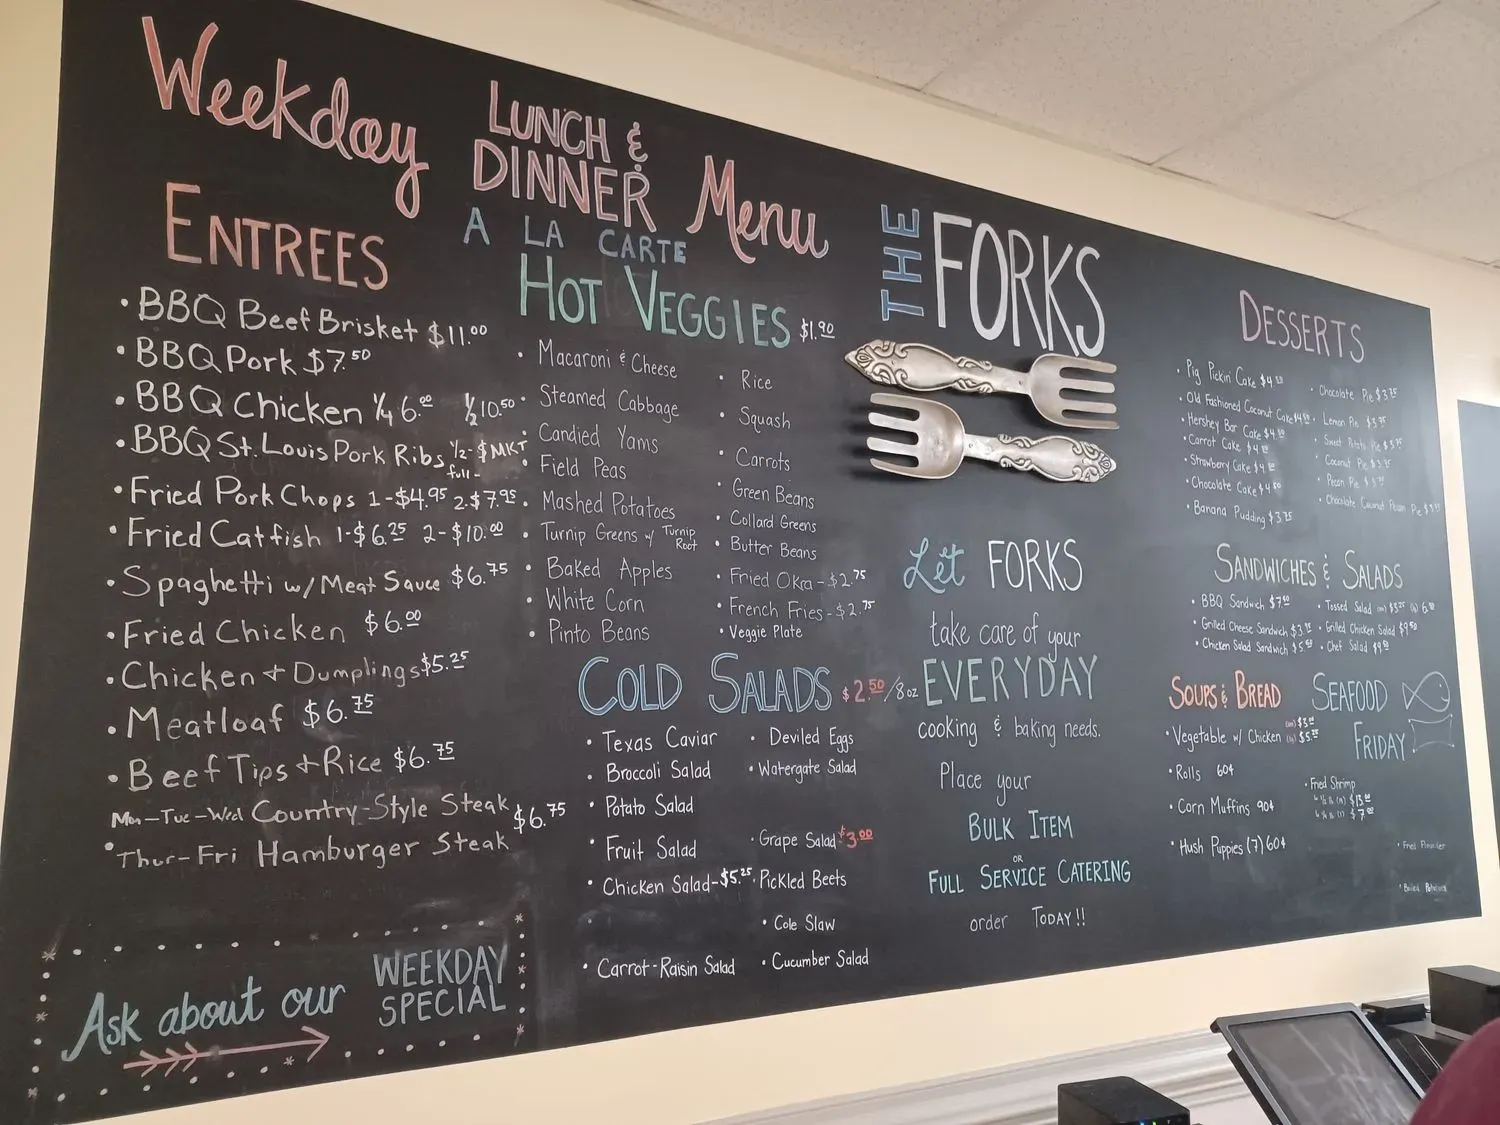 Weekday LUNCH & DINNER Menu
A LA CARTE
ENTREES
• BBQ Beef Brisket $11.00
• BBQ Pork $7.50
• BBQ Chicken 1/4 6.00 1/2 10.50
• BBQ St. Louis Pork Ribs 1/2- $MKT
full-
• Fried Pork Chops 1-$4.95 2-$7.95
• Fried Catfish 1-$6.25 2-$10.00
• Spaghetti w/ Meat Sauce $6.75
• Fried Chicken $6.00
• Chicken + Dumplings $5.25
• Meatloaf $6.75
• Beef Tips + Rice $6.75
Mon-Tue-Wed Country-Style Steak
$6.75
• Thur-Fri Hamburger Steak
Ask about our WEEKDAY SPECIAL
HOT VEGGIES $1.90
• Macaroni & Cheese
• Steamed Cabbage
• Candied Yams
• Field Peas
• Mashed Potatoes
• Turnip Greens w/ Turnip Root
• Baked Apples
• White Corn
• Pinto Beans
• Rice
• Squash
• Carrots
• Green Beans
• Collard Greens
• Butter Beans
• Fried Okra - $2.75
• French Fries - $2.75
• Veggie Plate
COLD SALADS $2.50/8oz
• Texas Caviar
• Broccoli Salad
• Potato Salad
• Fruit Salad
• Chicken Salad-$5.25
• Carrot-Raisin Salad
• Deviled Eggs
• Watergate Salad
• Grape Salad $3.00
• Pickled Beets
• Cole Slaw
• Cucumber Salad
THE FORKS
Let FORKS
take care of your
EVERYDAY
cooking & baking needs.
Place your
BULK ITEM
OR
FULL SERVICE CATERING
order TODAY!!
DESSERTS
• Pig Pickin' Cake
• Old Fashioned Coconut Cake
• Hershey Bar Cake
• Carrot Cake
• Strawberry Cake
• Chocolate Cake
• Banana Pudding $3.75
• Chocolate Pie $3.75
• Lemon Pie $3.75
• Sweet Potato Pie $3.75
• Coconut Pie $3.75
• Pecan Pie $3.75
• Chocolate Coconut Pecan Pie
SANDWICHES & SALADS
• BBQ Sandwich
• Grilled Cheese Sandwich
• Chicken Salad Sandwich
• Tossed Salad
• Grilled Chicken Salad $9.50
• Chef Salad
SOUPS & BREAD
• Vegetable w/ Chicken
• Rolls 60¢
• Corn Muffins 90¢
• Hush Puppies (7) 60¢
SEAFOOD
FRIDAY
• Fried Shrimp
• Fried Flounder